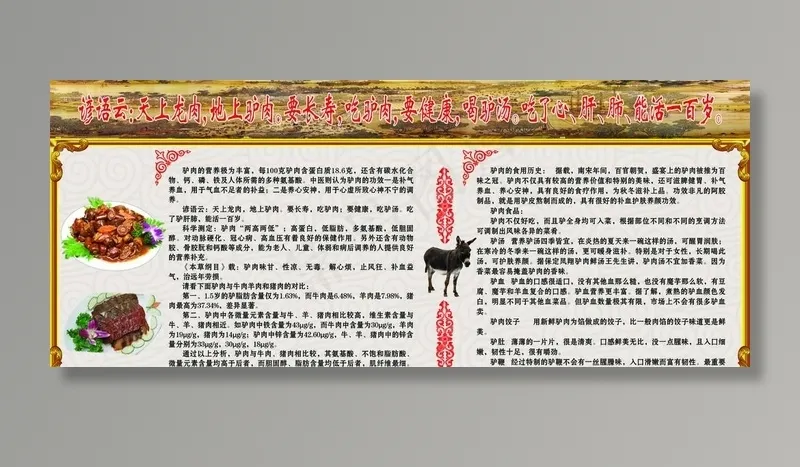 谚语云:天上龙肉,地上驴肉。要长寿,吃驴肉,要健康,喝驴汤。吃了心、肝、肺、能活一百岁。
驴肉的营养极为丰富，每100克驴肉含蛋白质18.6克，还含有碳水化合
物、钙、磷、铁及人体所需的多种氨基酸。中医则认为驴肉的功效一是补气
养血，用于气血不足者的补益；二是养心安神，用于心虚所致心神不宁的调
养。
谚语云：天上龙肉，地上驴肉。要长寿，吃驴肉；要健康，吃驴汤。吃
了驴肝肺，能活一百岁。
科学测定：驴肉“两高两低”：高蛋白，低脂肪，多氨基酸，低胆固
醇。对动脉硬化、冠心病、高血压有着良好的保健作用。另外还含有动物
胶、骨胶朊和钙酸等成分，能为老人、儿童、体弱和病后调养的人提供良好
的营养补充。
《本草纲目》载：驴肉味甘、性凉、无毒。解心烦，止风狂、补血益
气，治远年劳损。
请看下面驴肉与牛肉羊肉和猪肉的对比：
第一，1.5岁的驴脂肪含量仅为1.63%，而牛肉是6.48%，羊肉是7.98%，猪
肉最高为37.34%，差异显著。
第二，驴肉中各微量元素含量与牛、羊、猪肉相比较高，维生素含量与
牛、羊、猪肉相近。如驴肉中铁含量为43μg/g，而牛肉中含量为30μg/g，羊肉
为19μg/g，猪肉为14μg/g；驴肉中锌含量为42.60μg/g，牛、羊、猪肉中的锌含
量分别为33μg/g，30μg/g，18μg/g。
通过以上分析，驴肉与牛肉、猪肉相比较，其氨基酸、不饱和脂肪酸、
微量元素含量均高于后者，而胆固醇、脂肪含量均低于后者，肌纤维最细。
驴肉的食用历史：　据载，南宋年间，百官朝贺，盛宴上的驴肉被推为百
味之冠。驴肉不仅具有较高的营养价值和特别的美味，还可滋脾健胃、补气
养血、养心安神，具有良好的食疗作用，为秋冬滋补上品。功效非凡的阿胶
制品，就是用驴皮熬制而成的，具有很好的补血护肤养颜功效。
驴肉食品：
驴肉不仅好吃，而且驴全身均可入菜，根据部位不同和不同的烹调方法
可调制出风味各异的菜肴。
驴汤　营养驴汤四季皆宜，在炎热的夏天来一碗这样的汤，可醒胃润肤；
在寒冷的冬季来一碗这样的汤，更可暖身滋补。特别是对于女性，长期喝此
汤，可护肤养颜。据保定风翔驴肉鲜汤王先生讲，驴肉汤不宜加香菜。因为
香菜最容易掩盖驴肉的香味。
驴血　驴血的口感很适口，没有其他血那么糙，也没有魔芋那么软，有豆
腐、魔芋和羊血复合的口感。驴血营养更丰富。据了解，煮熟的驴血颜色发
白，明显不同于其他血菜品。但驴血数量极其有限，市场上不会有很多驴血
卖。
驴肉饺子　　用新鲜驴肉为馅做成的饺子，比一般肉馅的饺子味道更是鲜
美。
驴肚　薄薄的一片片，很是清爽。口感鲜美无比，没一点腥味，且入口细
嫩，韧性十足，很有嚼劲。
驴鞭　经过特制的驴鞭不会有一丝腥臊味，入口滑嫩而富有韧性。最重要